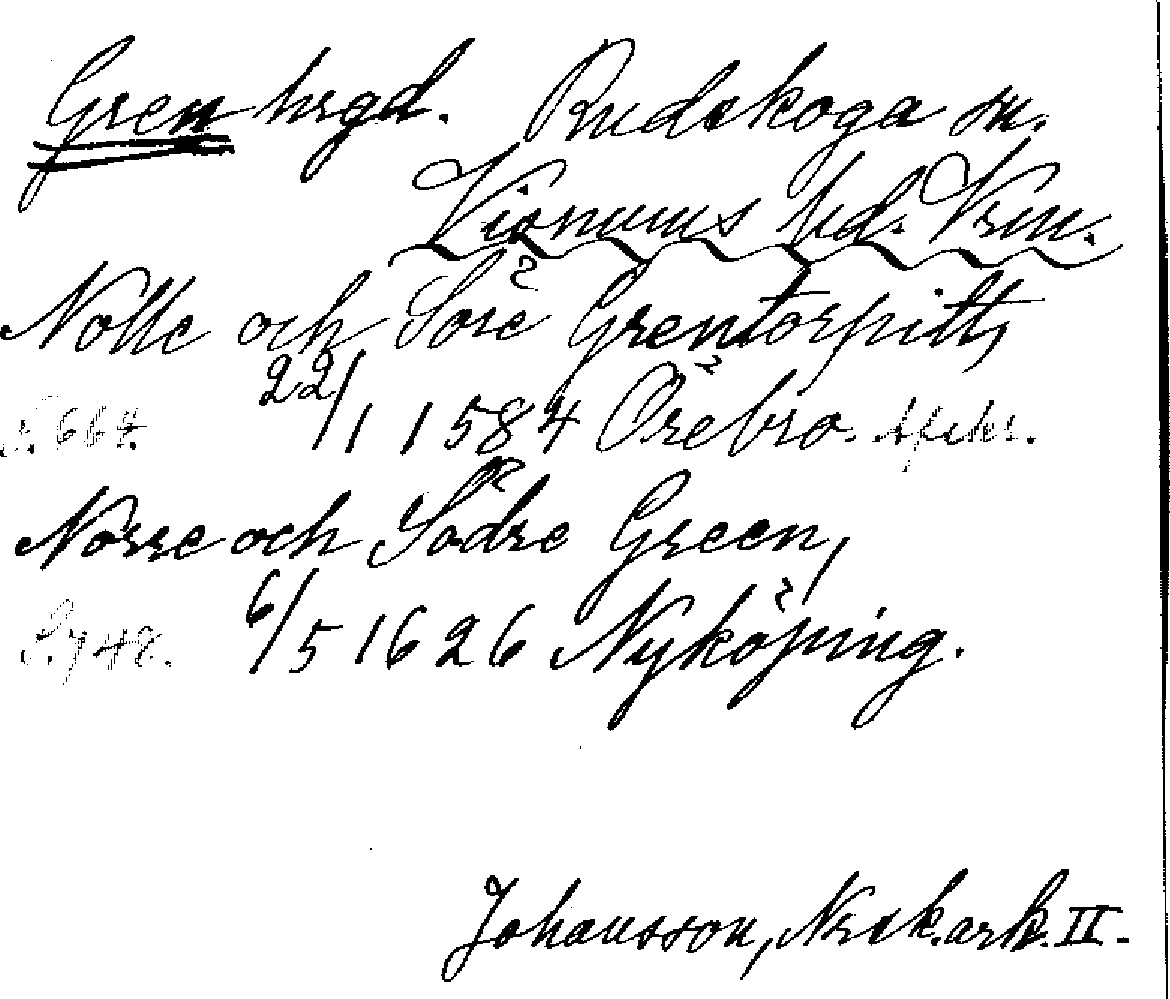 Gren hrgd. Rudskoga sn.
Visnums hd. Vrm.
Notte och Söre Grentorpitt,
S. 664. 22/1 1584 Örebro. Afskr.
Norre och Södre Green,
S. 748. 6/5 1626 Nyköping.
Johansson, Nrsk. ark. II.